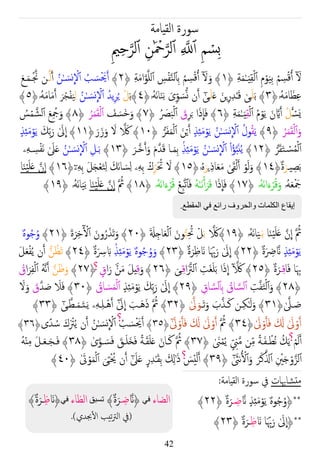 سورة القيامة
بِسْمِ ٱللَّهِ ٱلرَّحْمَٰنِ ٱلرَّحِيمِ
لَآ أُقْسِمُ بِيَوْمِ ٱلْقِيَٰمَةِ ﴿١﴾ وَلَآ أُقْسِمُ بِٱلنَّفْسِ ٱللَّوَّامَةِ ﴿٢﴾ أَيَحْسَبُ ٱلْإِنسَٰنُ أَلَّن نَّجْمَعَ
عِظَامَهُۥ ﴿٣﴾ بَلَىٰ قَٰدِرِينَ عَلَىٰٓ أَن نُّسَوِّىَ بَنَانَهُۥ ﴿٤﴾ بَلْ يُرِيدُ ٱلْإِنسَٰنُ لِيَفْجُرَ أَمَامَهُۥ ﴿٥﴾
يَسْـَٔلُ أَيَّانَ يَوْمُ ٱلْقِيَٰمَةِ ﴿٦﴾ فَإِذَا بَرِقَ ٱلْبَصَرُ ﴿٧﴾ وَخَسَفَ ٱلْقَمَرُ ﴿٨﴾ وَجُمِعَ ٱلشَّمْسُ
وَٱلْقَمَرُ ﴿٩﴾ يَقُولُ ٱلْإِنسَٰنُ يَوْمَئِذٍ أَيْنَ ٱلْمَفَرُّ ﴿١٠﴾ كَلَّا لَا وَزَرَ ﴿١١﴾ إِلَىٰ رَبِّكَ يَوْمَئِذٍ
ٱلْمُسْتَقَرُّ ﴿١٢﴾ يُنَبَّؤُا۟ ٱلْإِنسَٰنُ يَوْمَئِذٍۭ بِمَا قَدَّمَ وَأَخَّرَ ﴿١٣﴾ بَلِ ٱلْإِنسَٰنُ عَلَىٰ نَفْسِهِۦ
بَصِيرَةٌ ﴿١٤﴾ وَلَوْ أَلْقَىٰ مَعَاذِيرَهُۥ ﴿١٥﴾ لَا تُحَرِّكْ بِهِۦ لِسَانَكَ لِتَعْجَلَ بِهِۦٓ ﴿١٦﴾ إِنَّ عَلَيْنَا
جَمْعَهُۥ وَقُرْءَانَهُۥ ﴿١٧﴾ فَإِذَا قَرَأْنَٰهُ فَٱتَّبِعْ قُرْءَانَهُۥ ﴿١٨﴾ ثُمَّ إِنَّ عَلَيْنَا بَيَانَهُۥ ﴿١٩﴾
إيقاع الكلمات والحروف رائع في المقطع.
ثُمَّ إِنَّ عَلَيْنَا بَيَانَهُۥ ﴿١٩﴾ كَلَّا بَلْ تُحِبُّونَ ٱلْعَاجِلَةَ ﴿٢٠﴾ وَتَذَرُونَ ٱلْءَاخِرَةَ ﴿٢١﴾ وُجُوهٌ
يَوْمَئِذٍ نَّاضِرَةٌ ﴿٢٢﴾ إِلَىٰ رَبِّهَا نَاظِرَةٌ ﴿٢٣﴾ وَوُجُوهٌ يَوْمَئِذٍۭ بَاسِرَةٌ ﴿٢٤﴾ تَظُنُّ أَن يُفْعَلَ
بِهَا فَاقِرَةٌ ﴿٢٥﴾ كَلَّآ إِذَا بَلَغَتِ ٱلتَّرَاقِىَ ﴿٢٦﴾ وَقِيلَ مَنْ رَاقٍ ﴿٢٧﴾ وَظَنَّ أَنَّهُ ٱلْفِرَاقُ
﴿٢٨﴾ وَٱلْتَفَّتِ ٱلسَّاقُ بِٱلسَّاقِ ﴿٢٩﴾ إِلَىٰ رَبِّكَ يَوْمَئِذٍ ٱلْمَسَاقُ ﴿٣٠﴾ فَلَا صَدَّقَ وَلَا
صَلَّىٰ ﴿٣١﴾ وَلَٰكِن كَذَّبَ وَتَوَلَّىٰ ﴿٣٢﴾ ثُمَّ ذَهَبَ إِلَىٰٓ أَهْلِهِۦ يَتَمَطَّىٰٓ ﴿٣٣﴾
أَوْلَىٰ لَكَ فَأَوْلَىٰ ﴿٣٤﴾ ثُمَّ أَوْلَىٰ لَكَ فَأَوْلَىٰٓ ﴿٣٥﴾ أَيَحْسَبُ ٱلْإِنسَٰنُ أَن يُتْرَكَ سُدًى ﴿٣٦﴾
أَلَمْ يَكُ نُطْفَةً مِّن مَّنِىٍّ يُمْنَىٰ ﴿٣٧﴾ ثُمَّ كَانَ عَلَقَةً فَخَلَقَ فَسَوَّىٰ ﴿٣٨﴾ فَجَعَلَ مِنْهُ
ٱلزَّوْجَيْنِ ٱلذَّكَرَ وَٱلْأُنثَىٰٓ ﴿٣٩﴾ أَلَيْسَ ذَٰلِكَ بِقَٰدِرٍ عَلَىٰٓ أَن يُحْـِۧىَ ٱلْمَوْتَىٰ ﴿٤٠﴾
متشابهات في سورة القيامة:
**وُجُوهٌ يَوْمَئِذٍ نَّاضِرَةٌ ﴿٢٢﴾
**إِلَىٰ رَبِّهَا نَاظِرَةٌ ﴿٢٣﴾
الضاء في ﴿نَّاضِرَةٌ﴾ تسبق الظاء في ﴿نَاظِرَةٌ﴾
(في الترتيب الأبجدي).
42